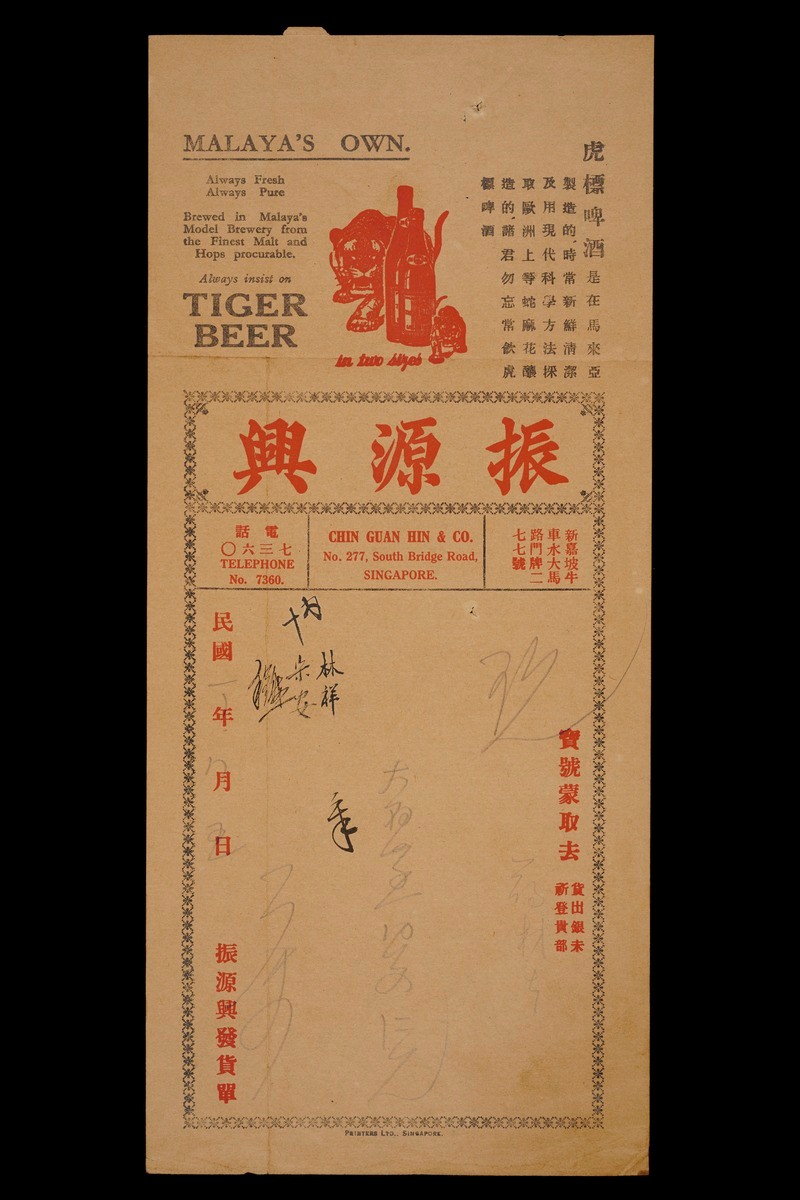 MALAYA'S OWN.
Always Fresh
Always Pure
Brewed in Malaya's
Model Brewery from
the Finest Malt and
Hops procurable.
Always insist on
TIGER
BEER
in two sizes
虎標啤酒是在馬來亞
製造的，時常新鮮清潔
及用現代科學方法採
取歐洲上等蛇麻花釀
造的，諸君勿忘常飲虎
標啤酒
興源振
話電
〇六三七
TELEPHONE
No. 7360.
CHIN GUAN HIN & CO.
No. 277, South Bridge Road,
SINGAPORE.
新嘉坡牛
車水大馬
路門牌二
七七號
寶號蒙取去
貨出銀未
祈登貴部
十月
林祥
民國年月日
五
振源興發貨單
PRINTERS LTD., SINGAPORE.